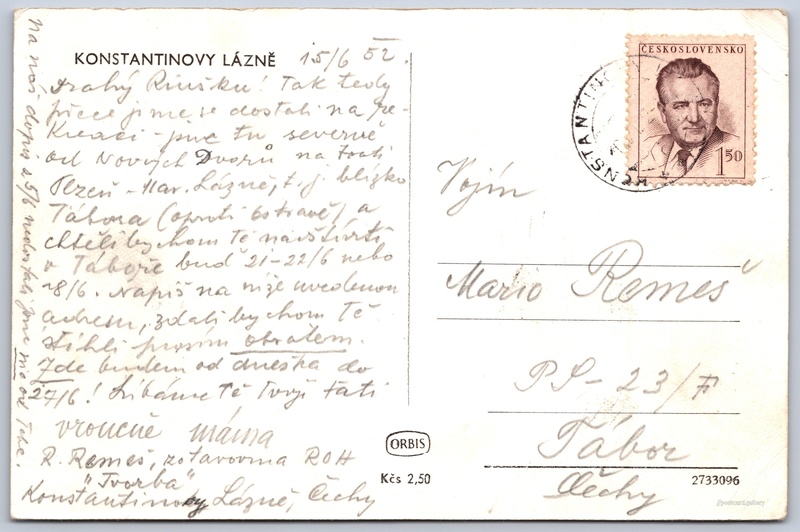 KONSTANTINOVY LÁZNĚ 15/6 52.
Drahý Riušku! Tak tedy
jsme se dostali na re-
kreaci - tu severně
od Nových Dvorů na trati
Plzeň - Mar. Lázně, t.j. blízko
Tábora (oproti Ostravě) a
chtěli bychom Tě navštívit
v Táboře buď 21-22/6 nebo
28/6. Napiš na níže uvedenou
adresu, zdali bychom Tě
stihli prosím obratem.
Zde budem od dneška do
27/6! Líbáme Tě Tvoji Tati
vroucně máma
R. Remeš, zotavovna ROH
"Tvorba"
Konstantinovy Lázně, Čechy
Na náš dopis z 5/6 nedostali jsme nic od Tebe.
ČESKOSLOVENSKO
1.50
Vojín
Mario Remeš
PS - 23/F
Tábor
Čechy
ORBIS
Kčs 2,50
2733096